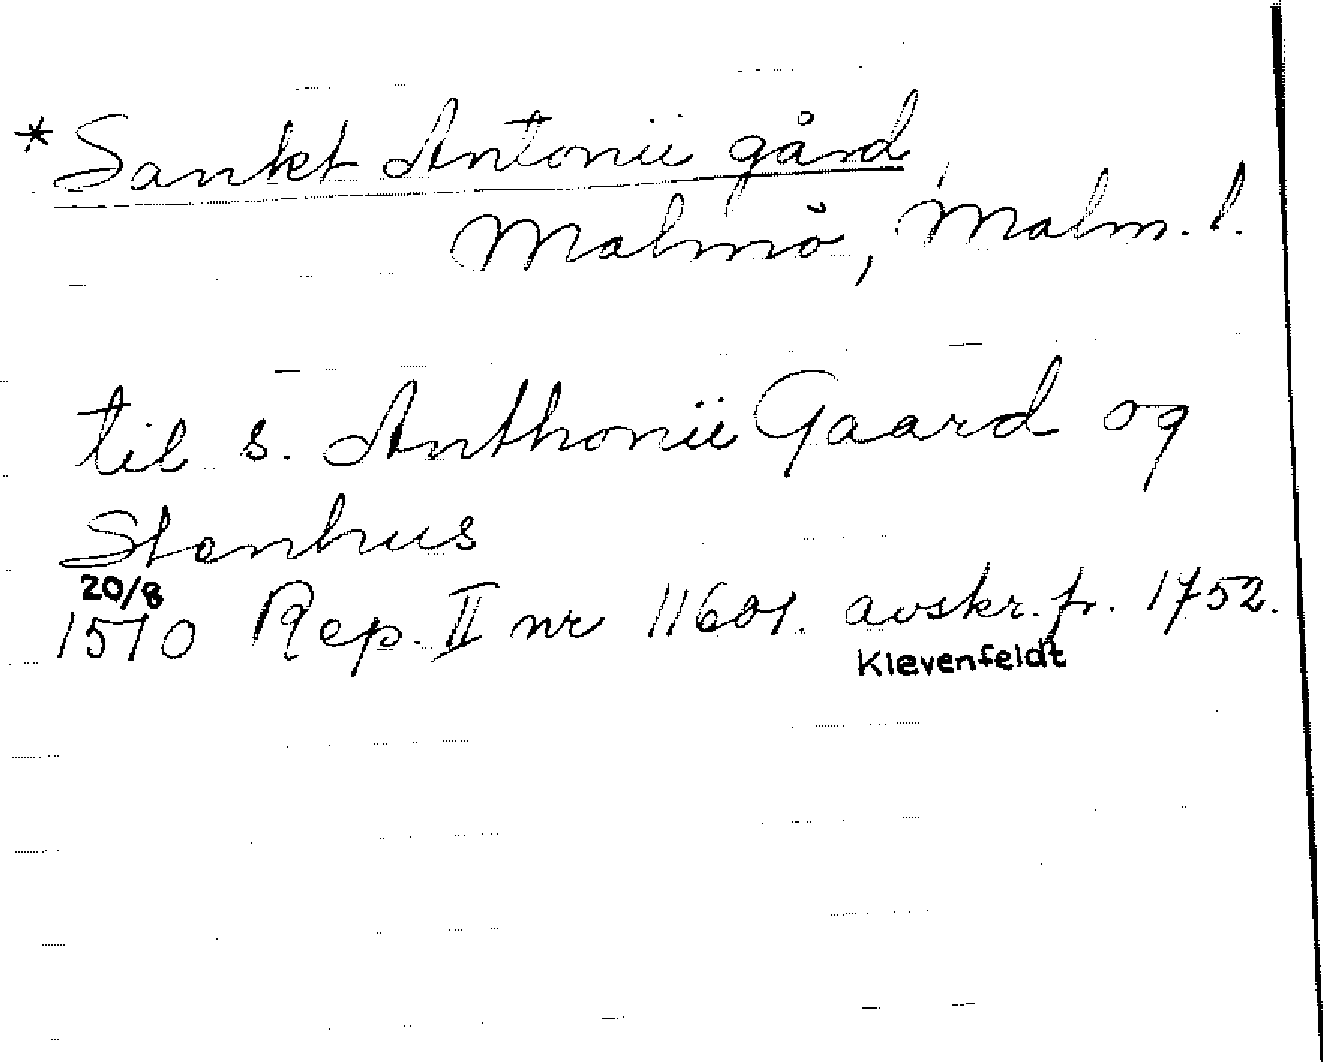 *Sankt Antonii gård,
Malmö, Malm. l.
til s. Anthonii Gaard og
Stenhus
20/8
1510 Rep. II nr 11601. avskr. fr. 1752.
Klevenfeldt